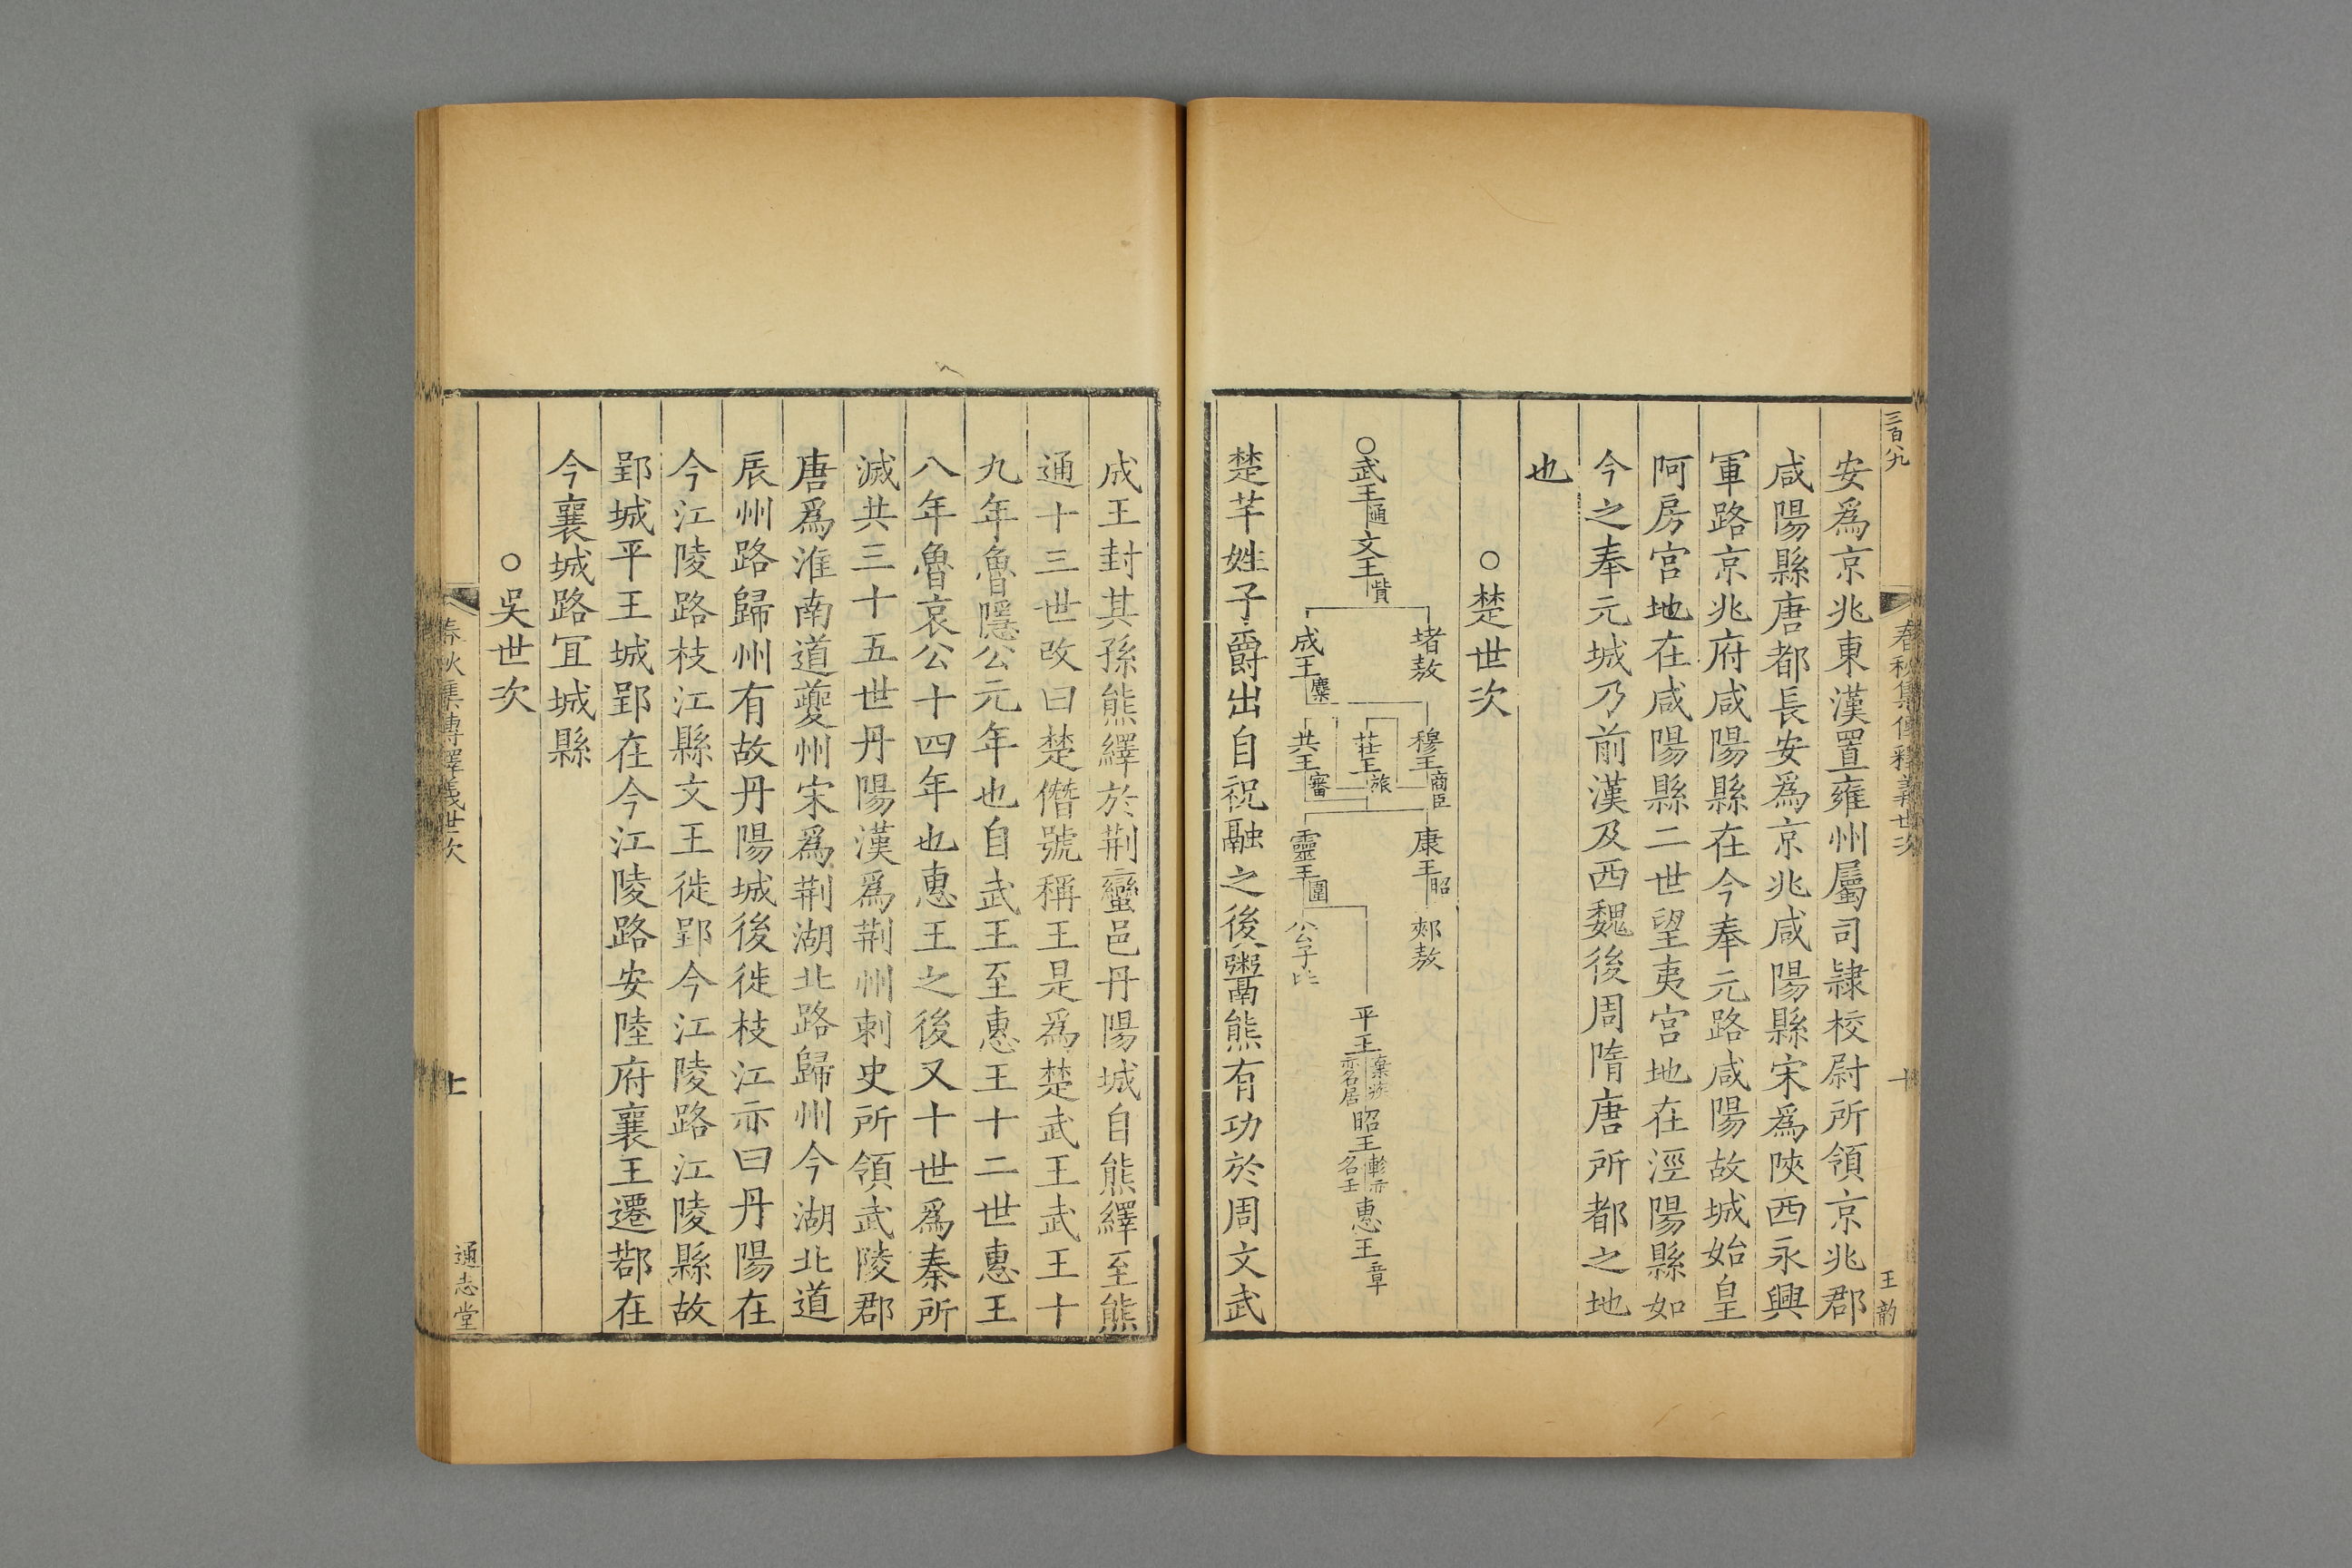 三百八九
春秋集傳釋義世次
十
王韵
安爲京兆東漢置雍州屬司隷校尉所領京兆郡
咸陽縣唐都長安爲京兆咸陽縣宋爲陜西永興
軍路京兆府咸陽縣在今奉元路咸陽故城始皇
阿房宮地在咸陽縣二世望夷宮地在涇陽縣如
今之奉元城乃前漢及西魏後周隋唐所都之地
也
○楚世次
○武王通文王貲
堵敖
成王麇
穆王商臣
莊王旅
共王審
康王昭郟敖
靈王圍
公子比
平王棄疾亦名居昭王軫亦名壬惠王章
楚芈姓子爵出自祝融之後鬻熊有功於周文武
成王封其孫熊繹於荆蠻邑丹陽城自熊繹至熊
通十三世改曰楚僭號稱王是爲楚武王武王十
九年魯隱公元年也自武王至惠王十二世惠王
八年魯哀公十四年也惠王之後又十世爲秦所
滅共三十五世丹陽漢爲荆州剌史所領武陵郡
唐爲淮南道夔州宋爲荆湖北路歸州今湖北道
辰州路歸州有故丹陽城後徙枝江亦曰丹陽在
今江陵路枝江縣文王徙郢今江陵路江陵縣故
郢城平王城郢在今江陵路安陸府襄王遷鄀在
今襄城路宜城縣
○吳世次
春秋集傳釋義世次
十
通志堂